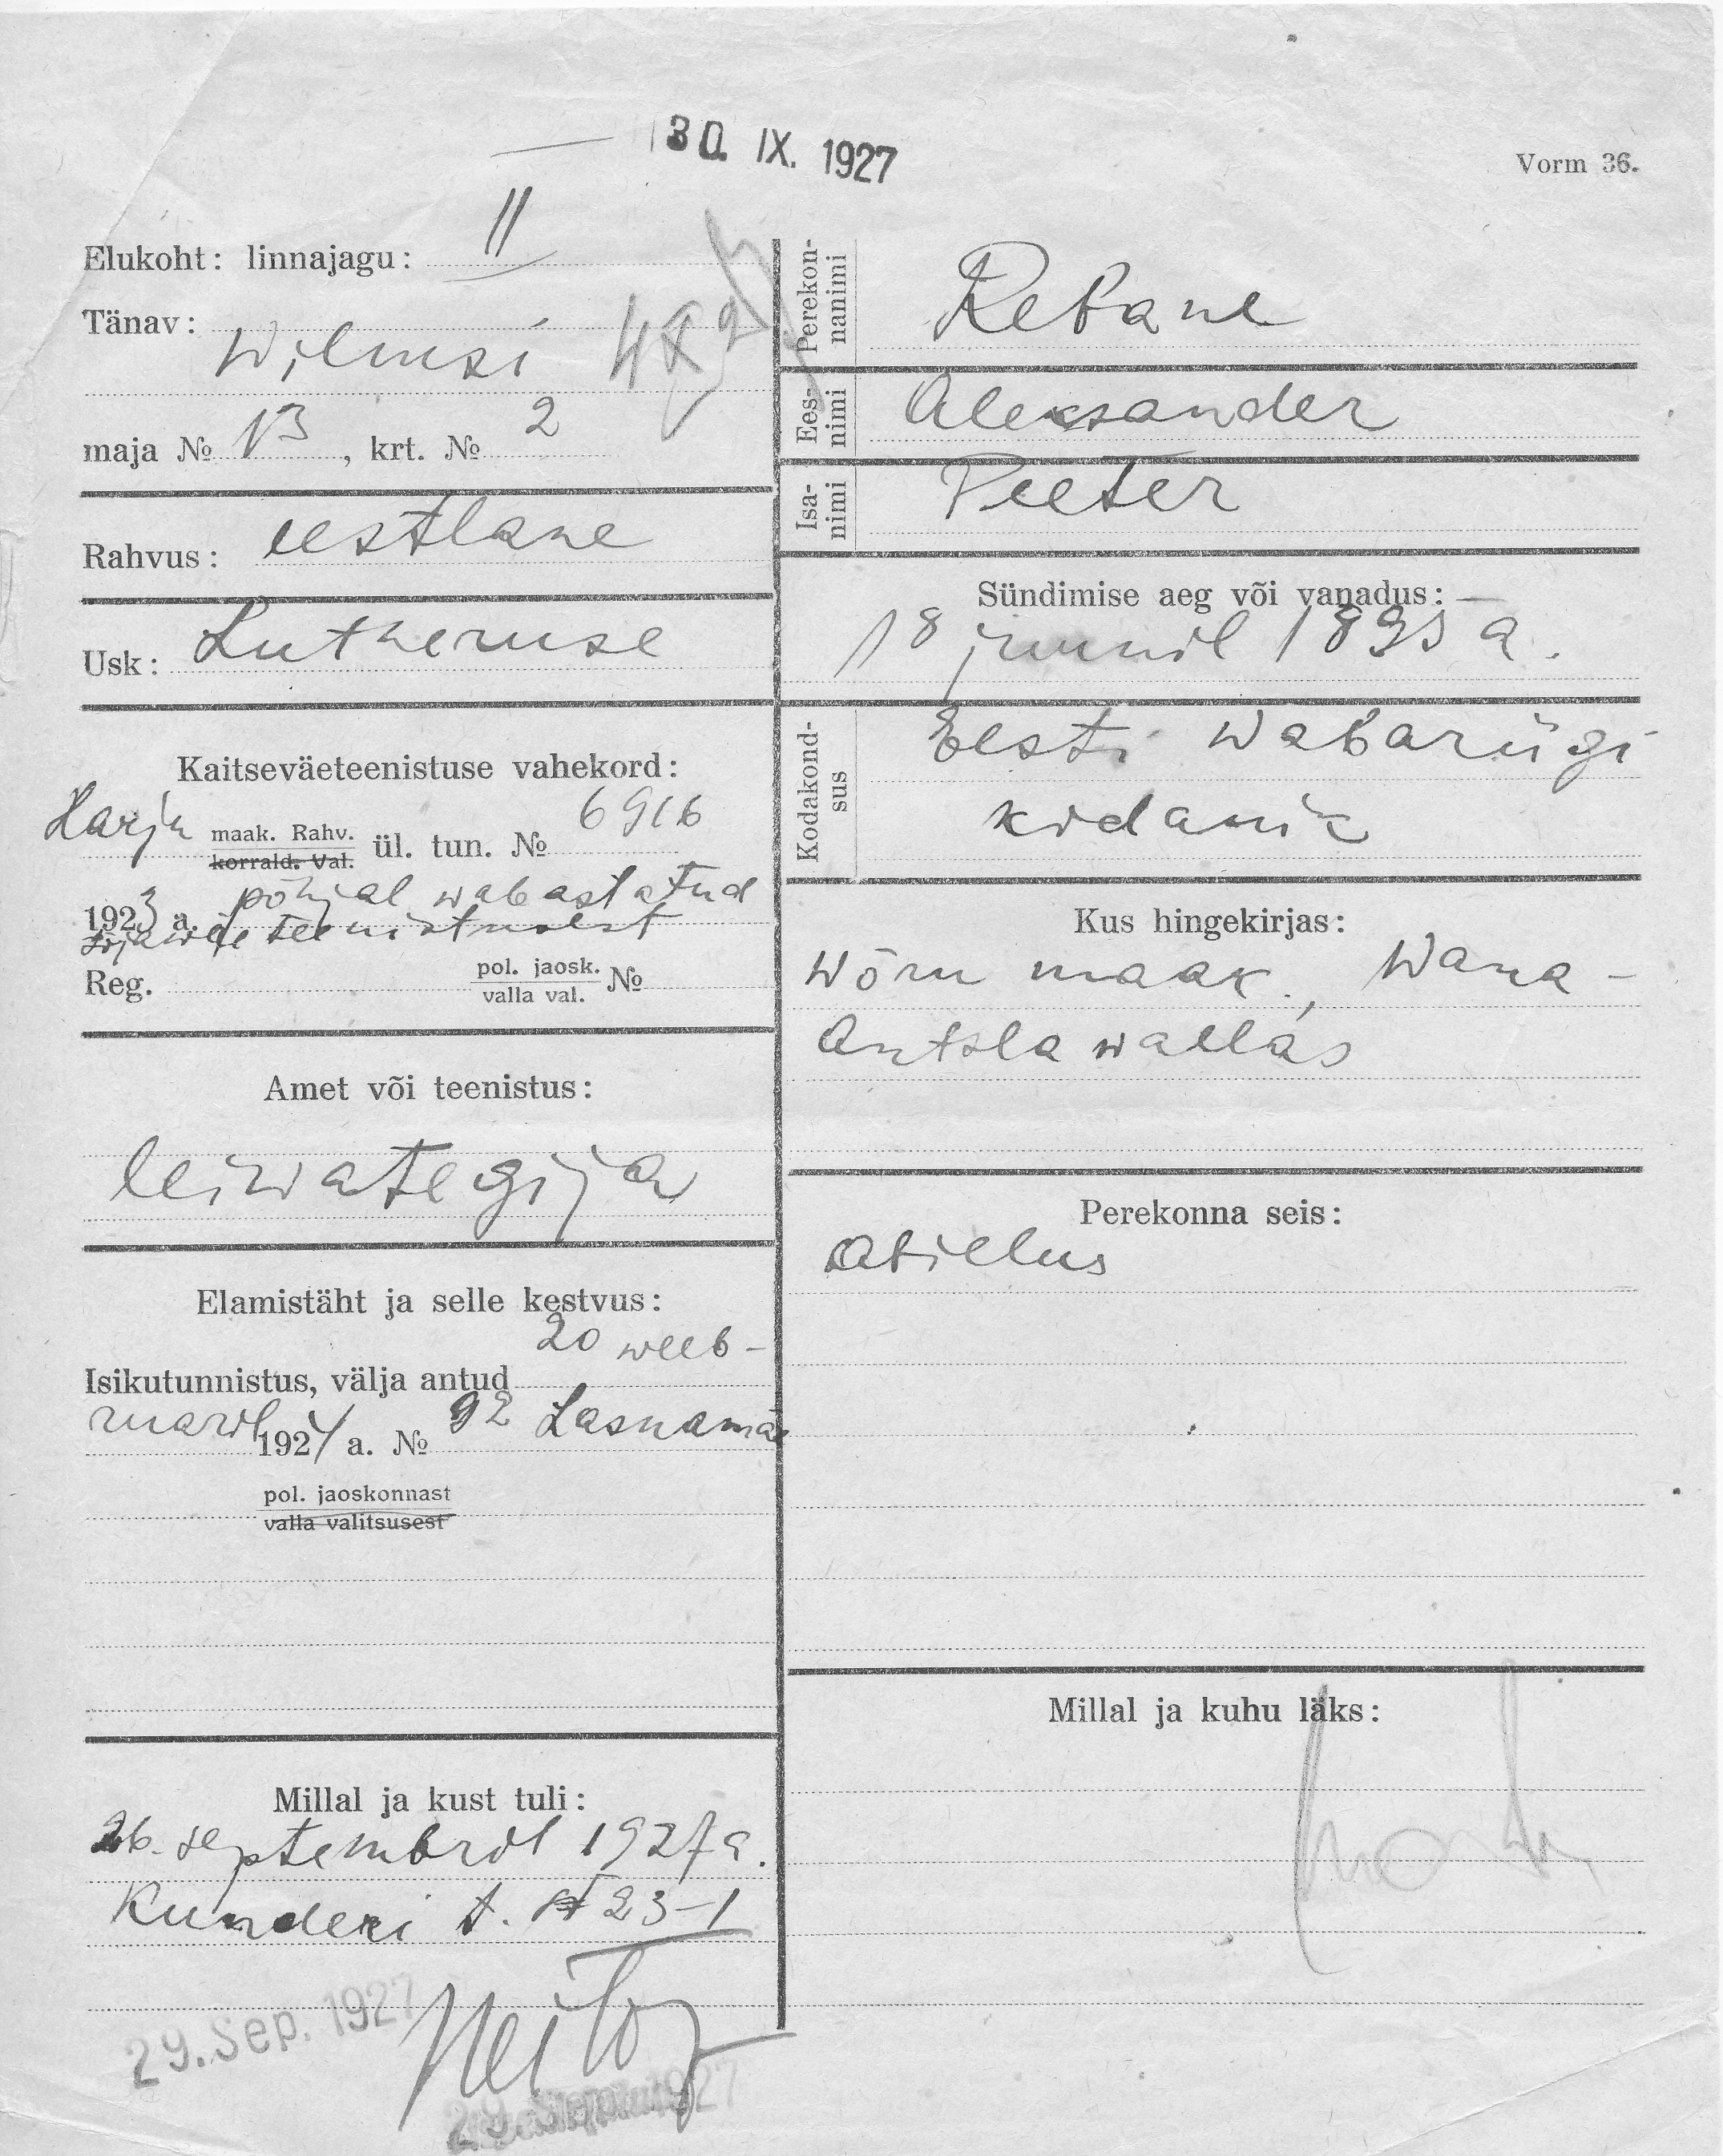 30. IX. 1927
Vorm 36.
Elukoht: linnajagu: II
Tänav: Wilmsi
maja № 13, krt. № 2
Rahvus: eestlane
Usk: Lutheruse
Kaitseväeteenistuse vahekord:
Harju maak. Rahv. korrald. Val. ül. tun. № 6916
1923 a. põhjal wabastatud
sõjawäe teenistusest
Reg. pol. jaosk. valla val. №
Amet või teenistus:
leiwategija
Elamistäht ja selle kestvus:
Isikutunnistus, välja antud 20 weeb-
ruaril 1924 a. № 92 Lasnamäe
pol. jaoskonnast
valla valitsusest
Millal ja kust tuli:
26. septembril 1927 a.
Kunderi t. № 23-1
29. Sep. 1927
Perekon-
nanimi
Rebane
Ees-
nimi
Aleksander
Isa-
nimi
Peeter
Sündimise aeg või vanadus:
18 juunil 1895 a.
Kodakond-
sus
Eesti wabariigi
kodanik
Kus hingekirjas:
Wõru maak., Wana-
Antsla wallas
Perekonna seis:
abielus
Millal ja kuhu läks: